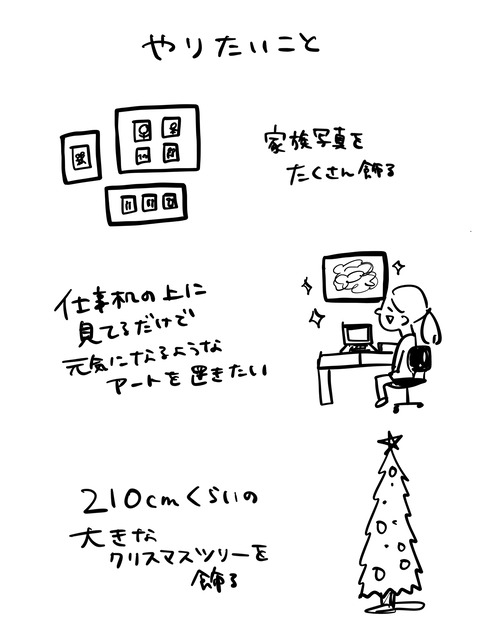 やりたいこと
家族写真を
たくさん飾る
仕事机の上に
見てるだけで
元気になるような
アートを置きたい
210cmくらいの
大きな
クリスマスツリーを
飾る